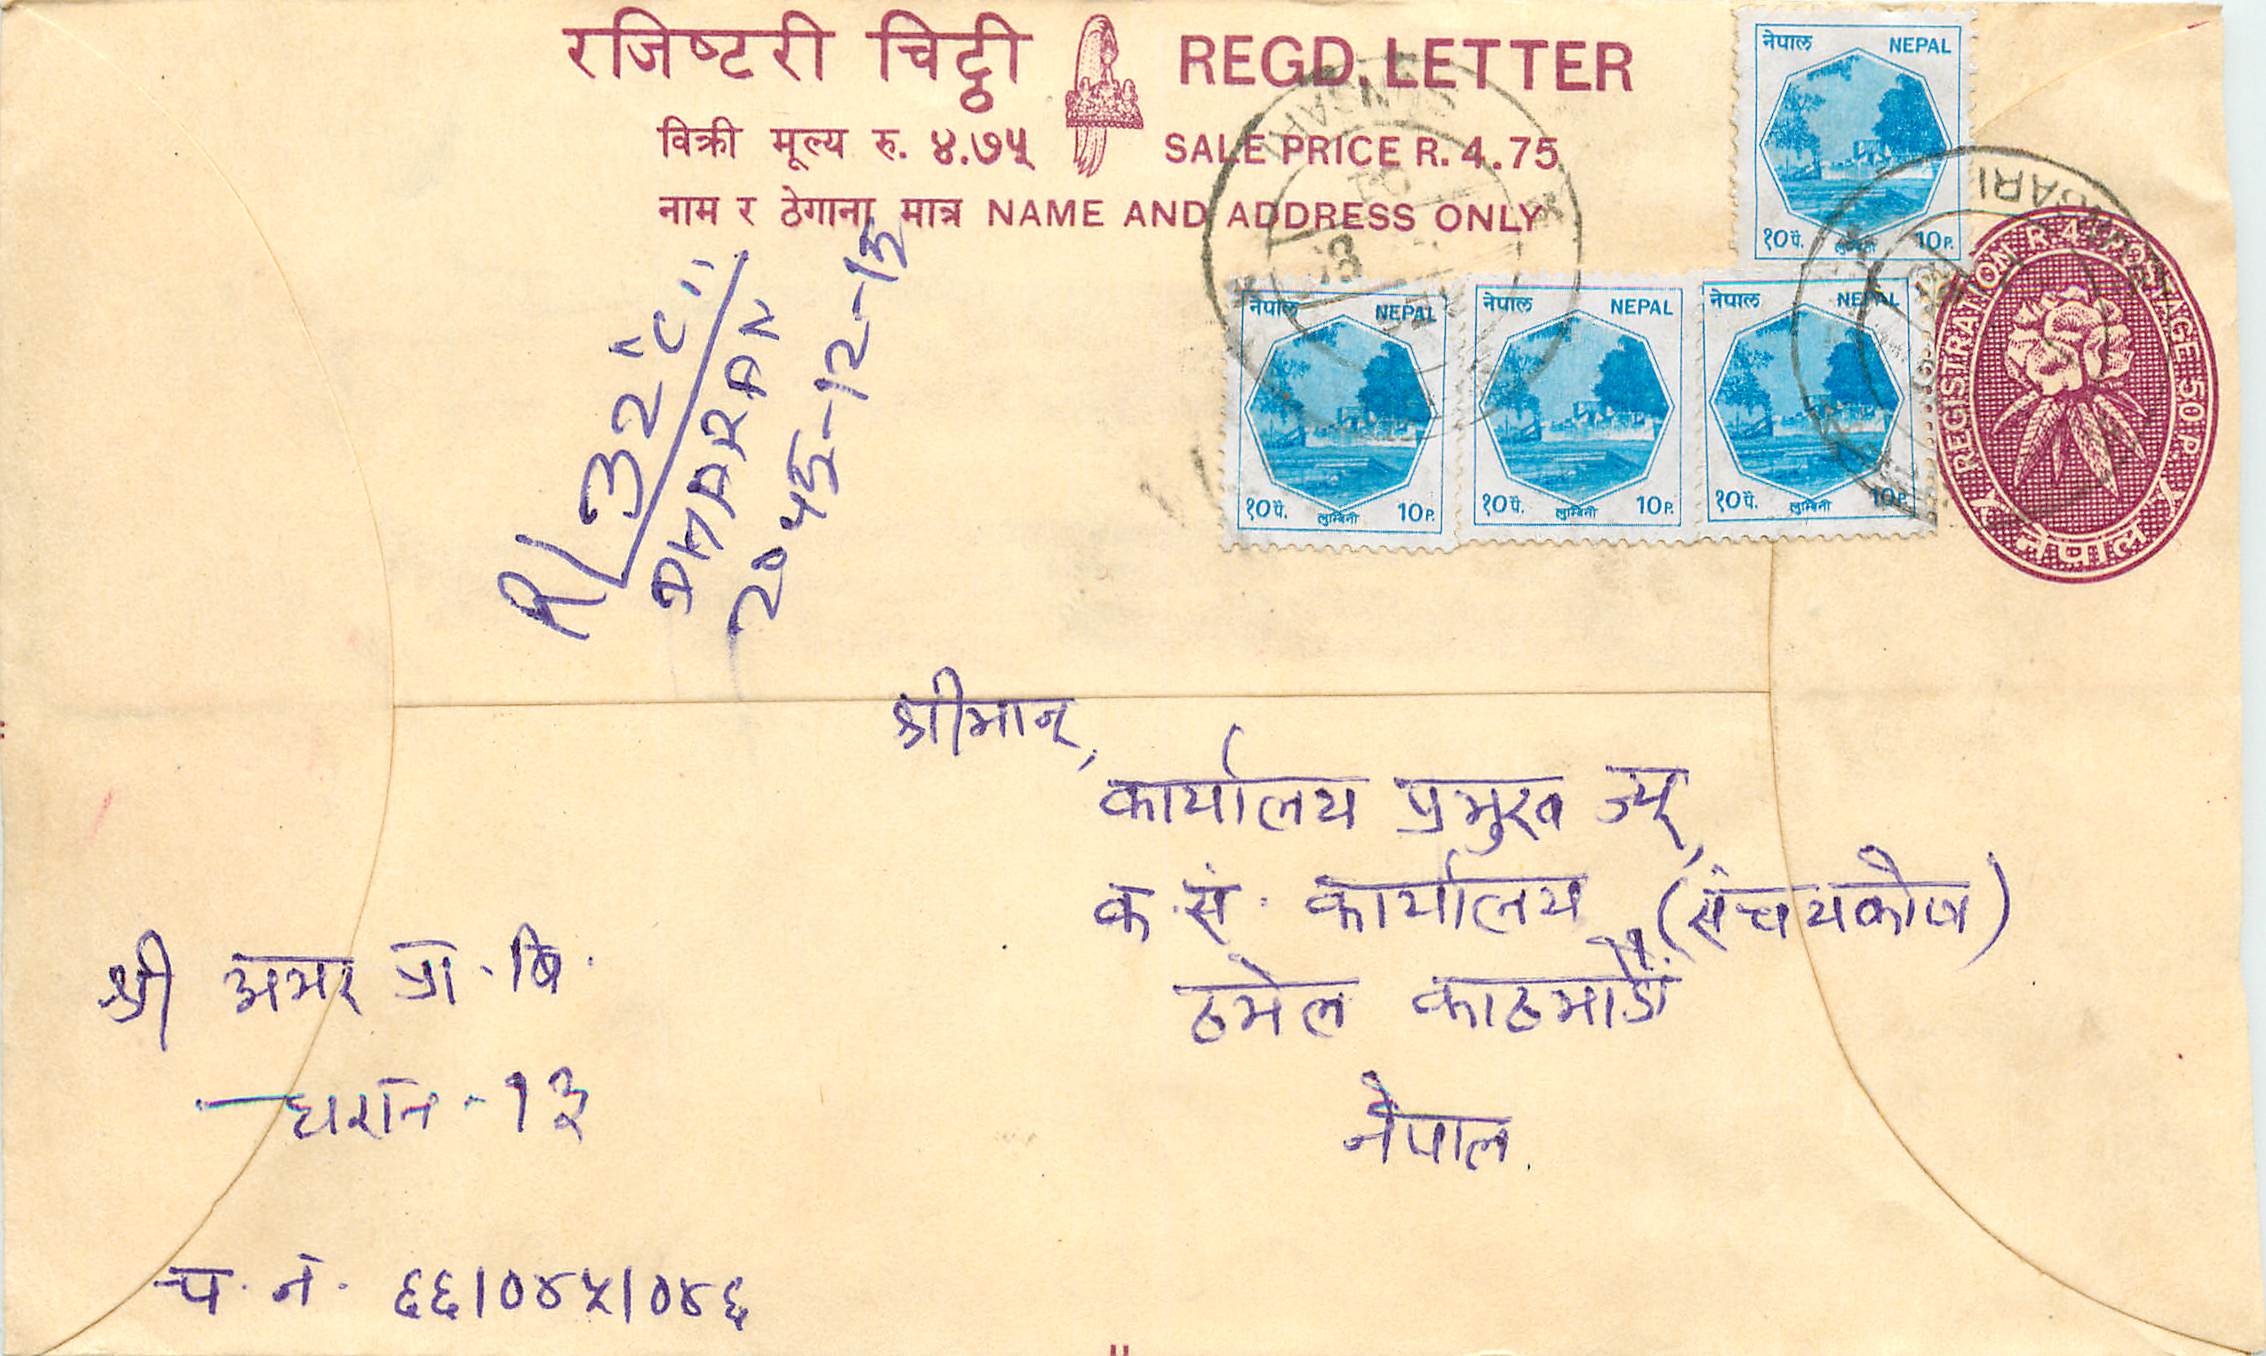 रजिष्टरी चिट्ठी REGD. LETTER
विक्री मूल्य रु. ४.७५ SALE PRICE R. 4.75
नाम र ठेगाना मात्र NAME AND ADDRESS ONLY
नेपाल NEPAL
१० पै. लुम्बिनी 10 P.
नेपाल NEPAL
१० पै. लुम्बिनी 10 P.
नेपाल NEPAL
१० पै. लुम्बिनी 10 P.
नेपाल NEPAL
१० पै. लुम्बिनी 10 P.
REGISTRATION R. 4 POSTAGE 50 P.
नेपाल
SUNSARI
R/
DHARAN
२०४५-१२-१३
श्रीमान्,
कार्यालय प्रमुख ज्यू,
क.सं. कार्यालय (संचयकोष)
ठमेल काठमाडौं
नेपाल.
श्री अमर प्रा.बि.
धरान-१३
च.नं. ६६।०४५।०४६